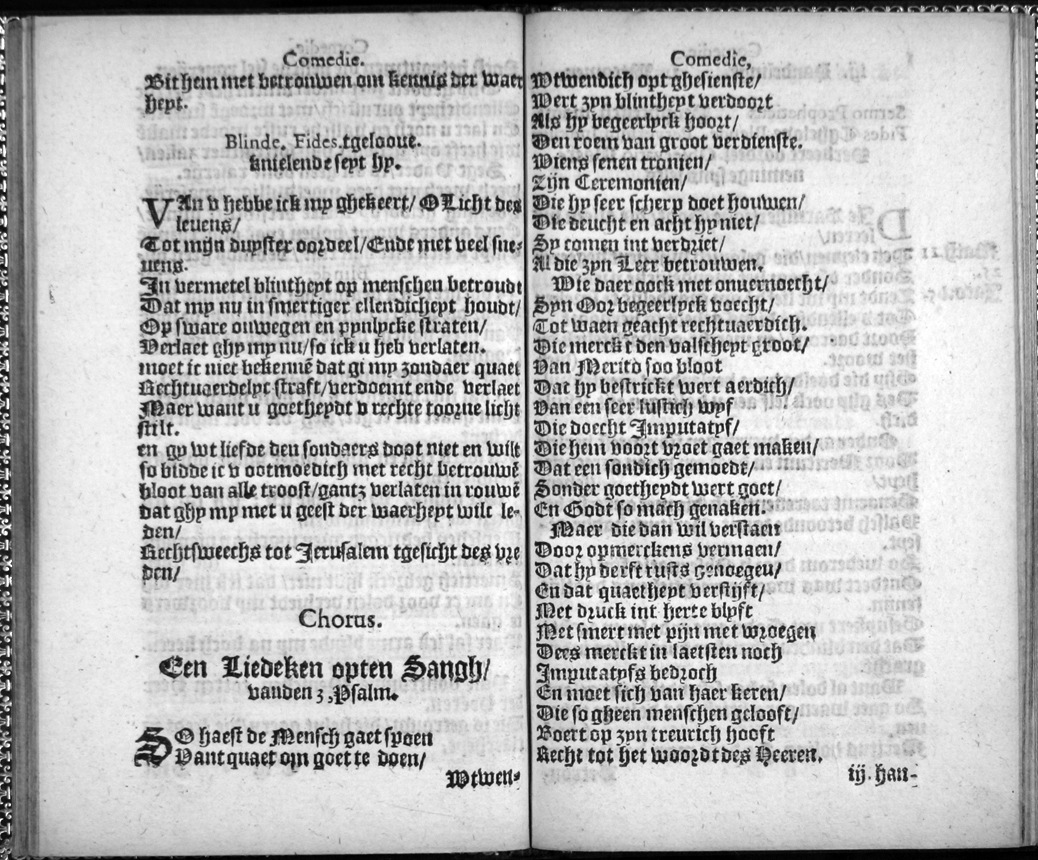 Comedie.
Bit hem met betrouwen om kennis der waer
heyt.
Blinde. Fides.tgelooue.
knielende seyt hy.
VAn v hebbe ick my ghekeert/ O Licht des
leuens/
Tot mijn duyster oordeel/ Ende met veel sne-
uens.
In vermetel blintheyt op menschen betroudt
Dat my nu in smertiger ellendicheyt houdt/
Op sware omwegen en pynlycke straten/
Verlaet ghy my nu/so ick u heb verlaten.
moet ic niet bekennē dat gi my zondaer quaet
Rechtuaerdelyt straft/verdoemt ende verlaet
Maer want u goetheydt v rechte toorne licht
stilt.
en gy wt liefde den sondaers doot niet en wilt
so bidde ic v ootmoedich met recht betrouwē
bloot van alle troost/gantz verlaten in rouwē
dat ghy my met u geest der waerheyt wilt le-
den/
Rechtsweechs tot Jerusalem tgesicht des vre
den/
Chorus.
Een Liedeken opten Sangh/
vanden 3,Psalm.
SO haest de Mensch gaet spoen
Vant quaet om goet te doen/
Wtwen-
Comedie,
Wtwendich opt ghesienste/
Wert zyn blintheyt verdoort
Als hy begeerlyck hoort/
Den roem van groot verdienste.
Wiens senen tronien/
Zijn Ceremonien/
Die hy seer scherp doet houwen/
Die deucht en acht hy niet/
Sy comen int verdriet/
Al die zyn Leer betrouwen.
Wie daer oock met onuernoecht/
Syn Oor begeerlyck voecht/
Tot waen geacht rechtuaerdich.
Die merckt den valscheyt groot/
Van Merito soo bloot
Dat hy bestrickt wert aerdich/
Van een seer lustich wyf
Die doecht Imputatyf/
Die hem voort vroet gaet maken/
Dat een sondich gemoedt/
Sonder goetheydt wert goet/
En Godt so mach genaken.
Maer die dan wil verstaen
Door opmerckens vermaen/
Dat hy derft rusts genoegen/
En dat quaetheyt verstijft/
Met druck int herte blyft
Met smert met pijn met wroegen
Dees merckt in laetsten noch
Imputatyfs bedroch
En moet sich van haer keren/
Die so gheen menschen gelooft/
Boert op zyn treurich hooft
Recht tot het woordt des Heeren.
iij. han-